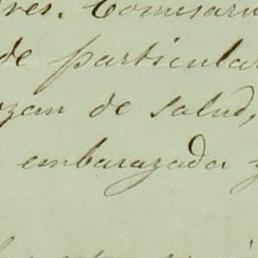 res. Comisario
de particular
ozan de salud,
embarazada y